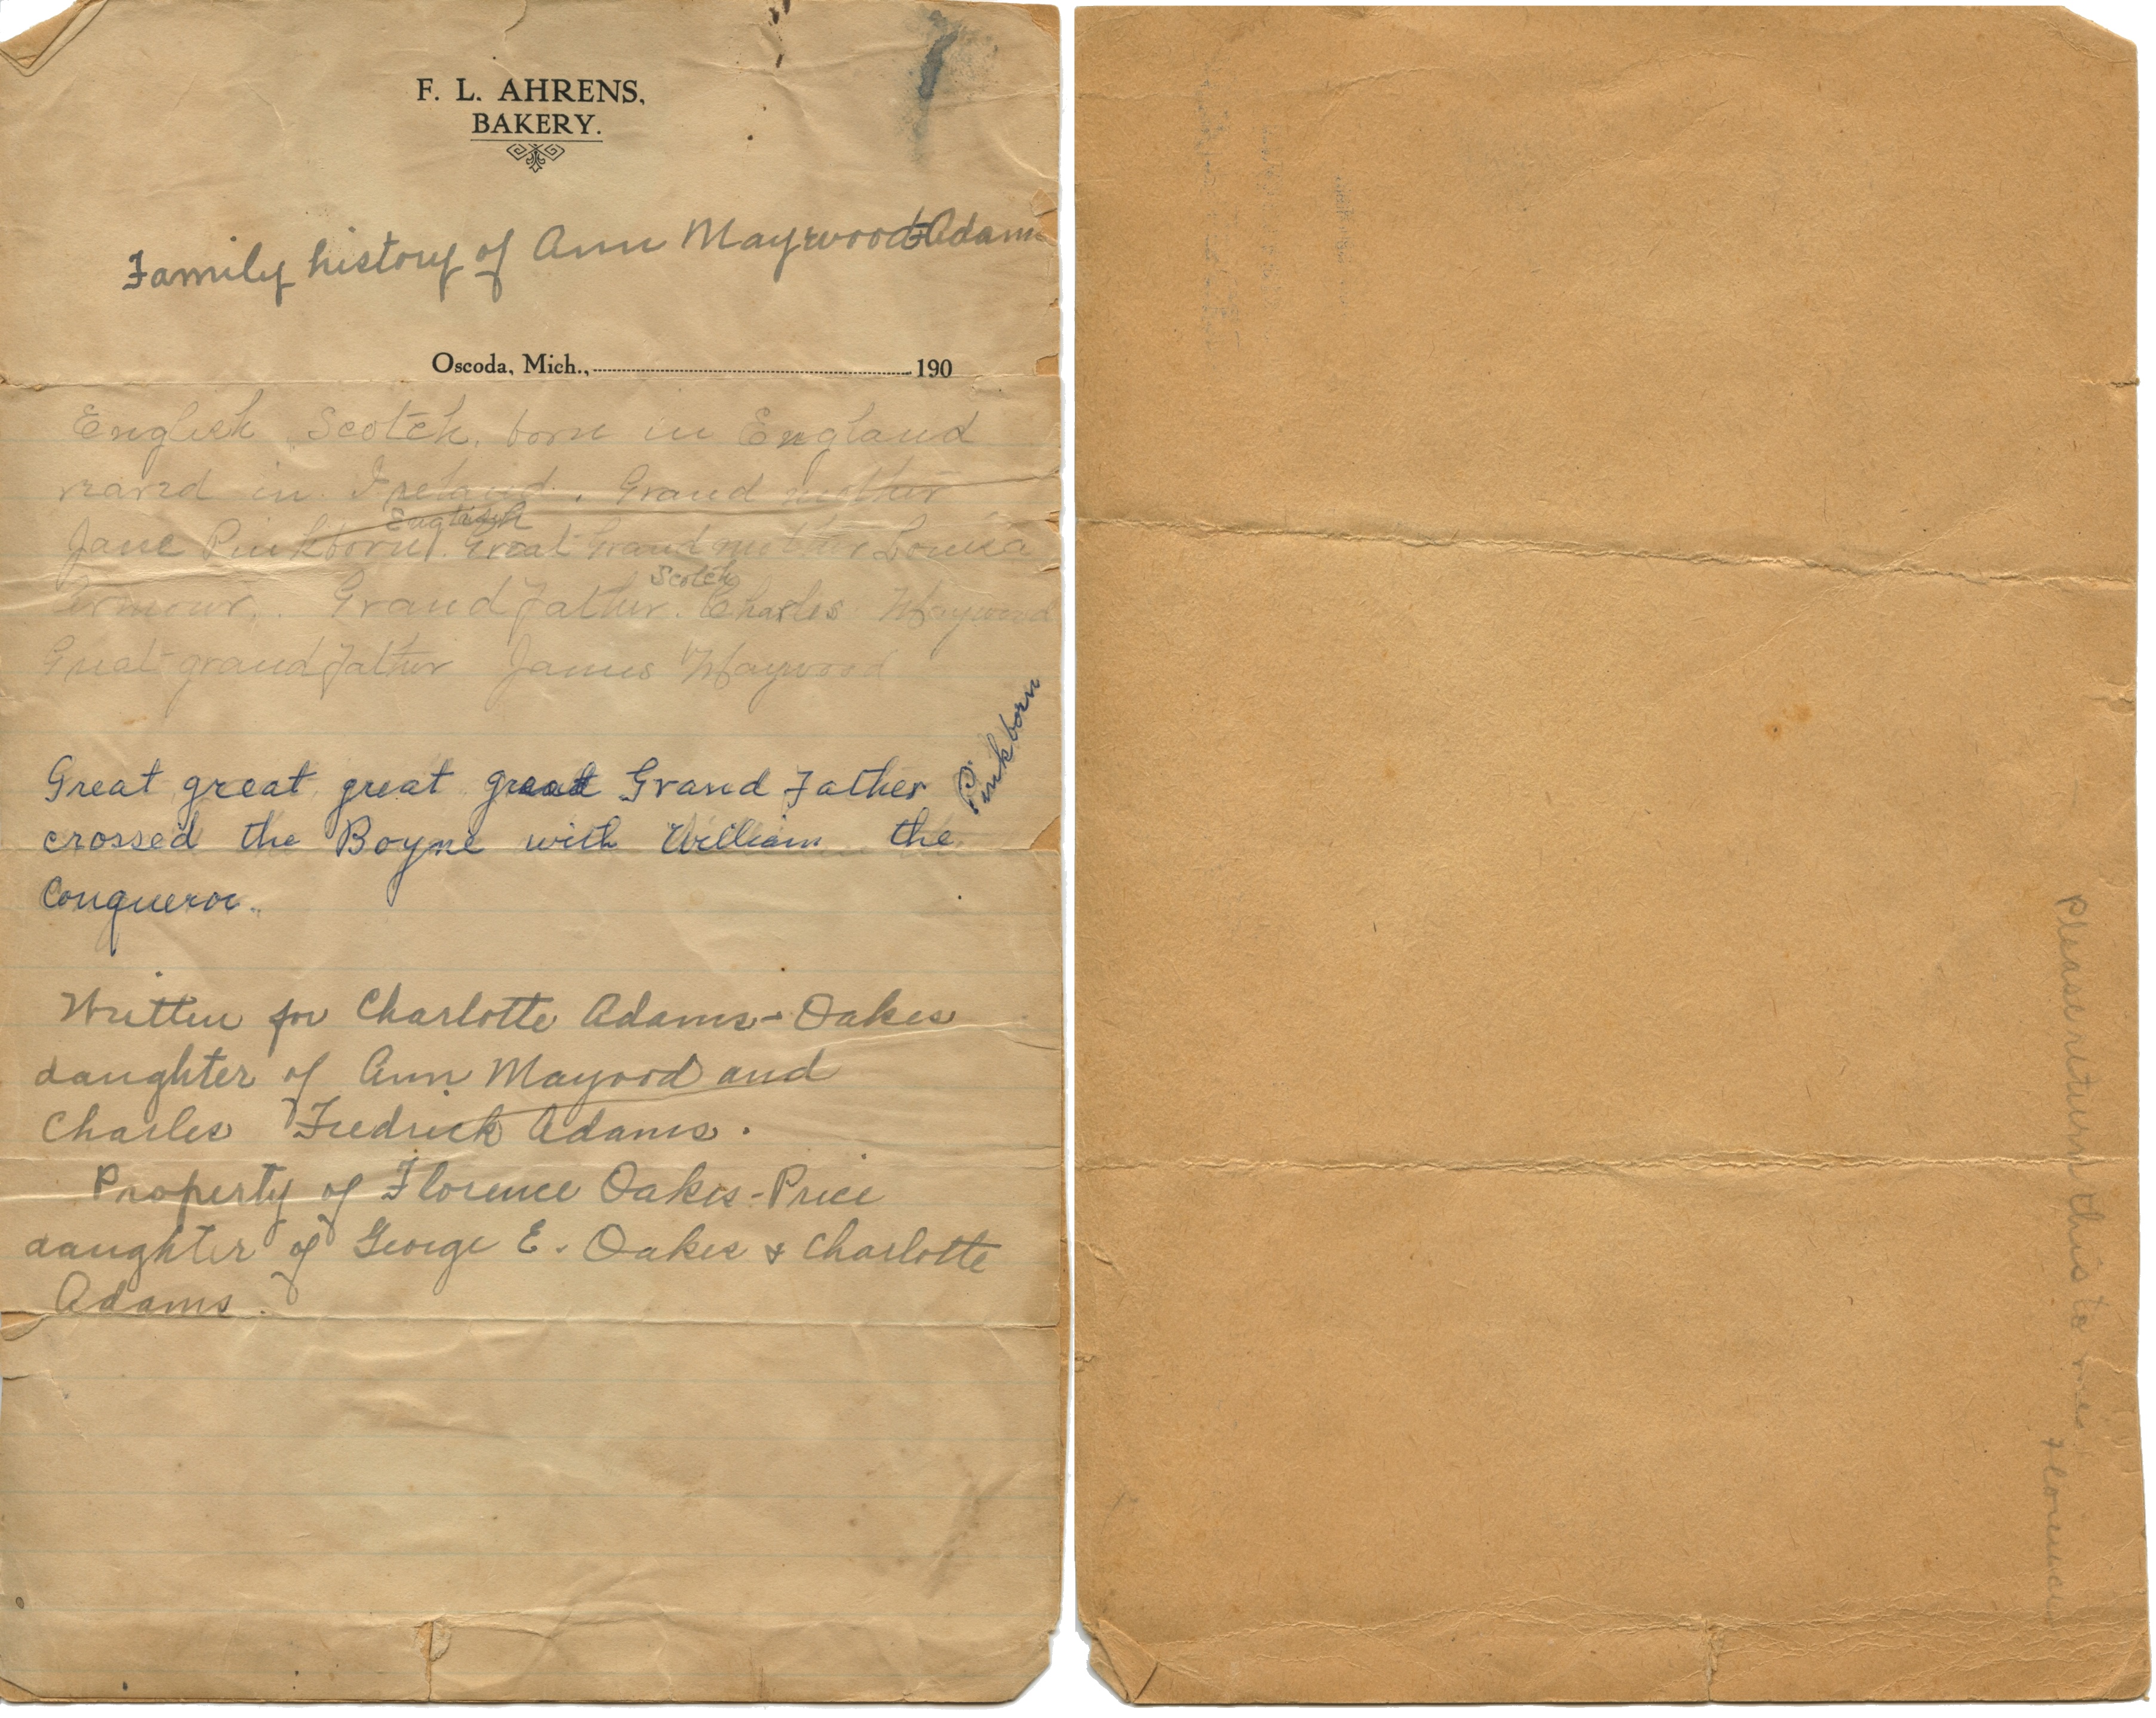 F. L. AHRENS,
BAKERY.
Family history of Ann Maywood-Adams
Oscoda, Mich., 190
English Scotch, born in England
reared in Ireland. Grand mother
English
Jane Pinkborn. Great Grand mother Louisa
Scotch
Ermour. Grandfather. Charles Maywood
Great grandfather James Maywood
Pinkborn
Great great great great Grand Father
crossed the Boyne with William the
Conqueror.
Written for Charlotte Adams-Oakes
daughter of Ann Mayood and
Charles Fredrick Adams.
Property of Florence Oakes-Price
daughter of George E. Oakes & Charlotte
Adams.
Please return this to me
Florence